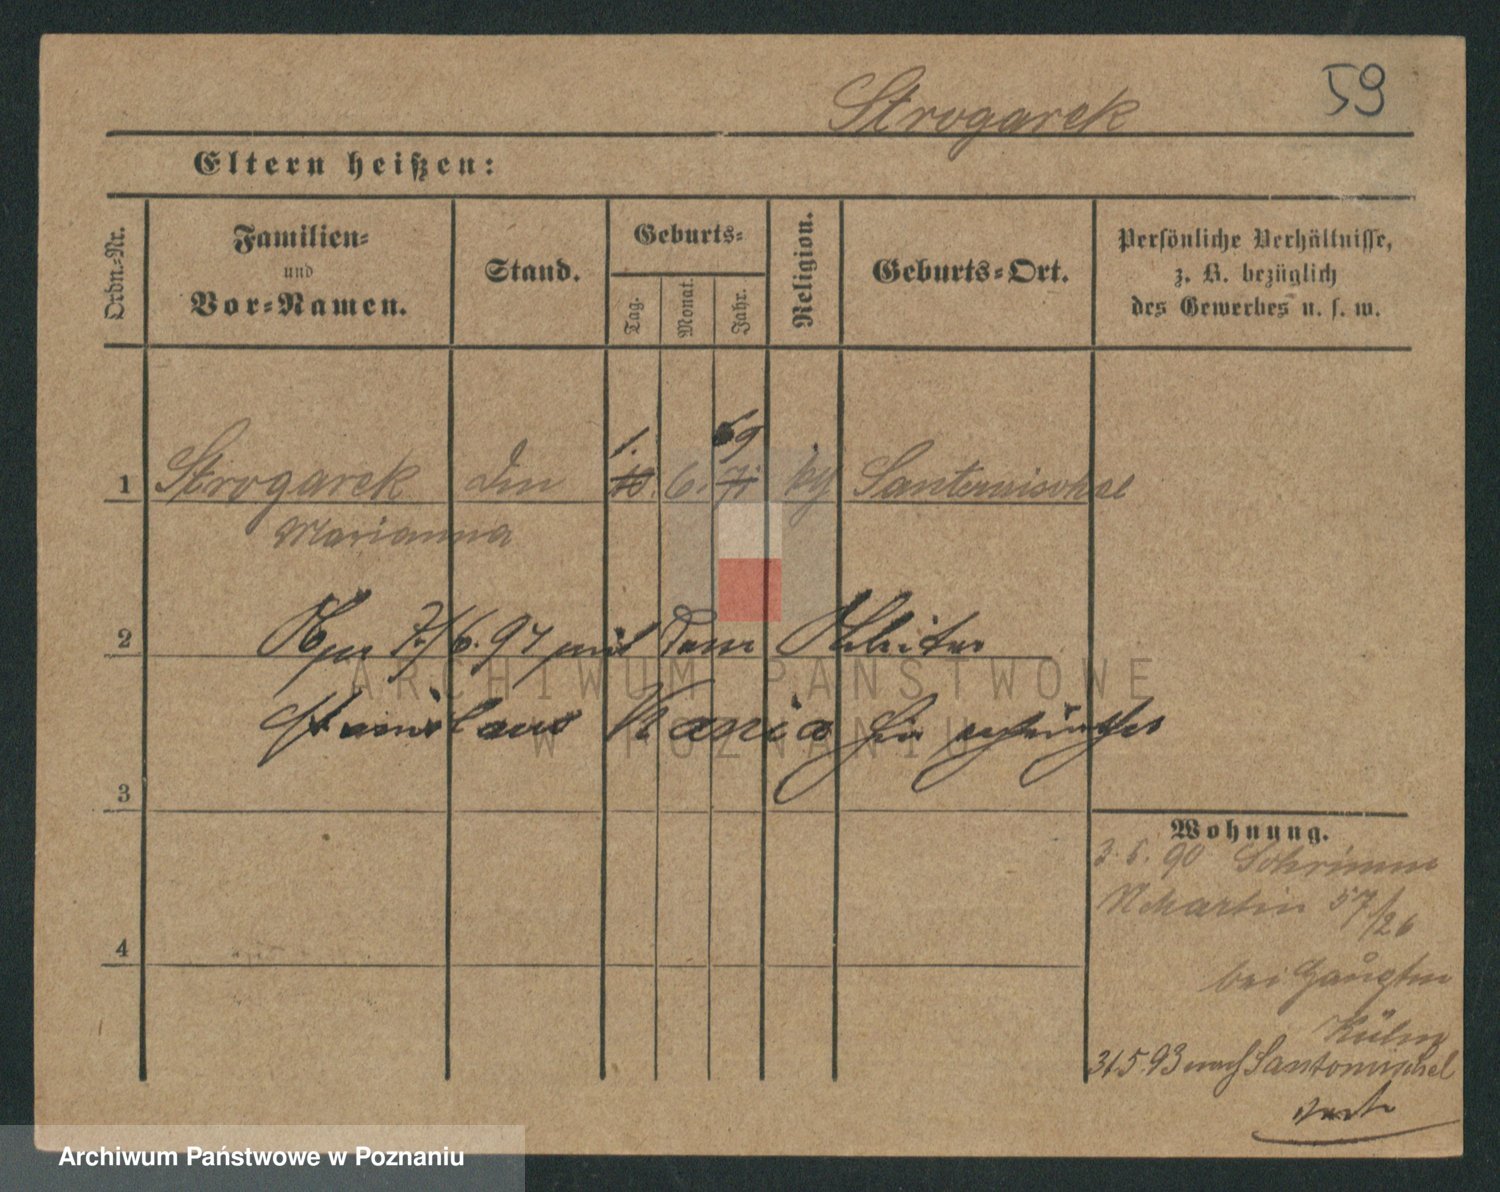 59
Strogarek
Eltern heißen:
Ordn.-Nr.
Familien-
und
Vor-Namen.
Stand.
Geburts-
Tag.
Monat.
Jahr.
Religion.
Geburts-Ort.
Persönliche Verhältnisse,
z. B. bezüglich
des Gewerbes u. s. w.
1. 69
1 Strogarek 10. 6. 71 Santomischel
Marianna
2 7/6. 97 mit dem
ARCHIWUM PAŃSTWOWE
Stanislaus Kania
W POZNANIU
3
Wohnung.
3. 5. 90 Schrimm
Martin 57/26
4
bei
31.5.93 nach Santomischel
Archiwum Państwowe w Poznaniu